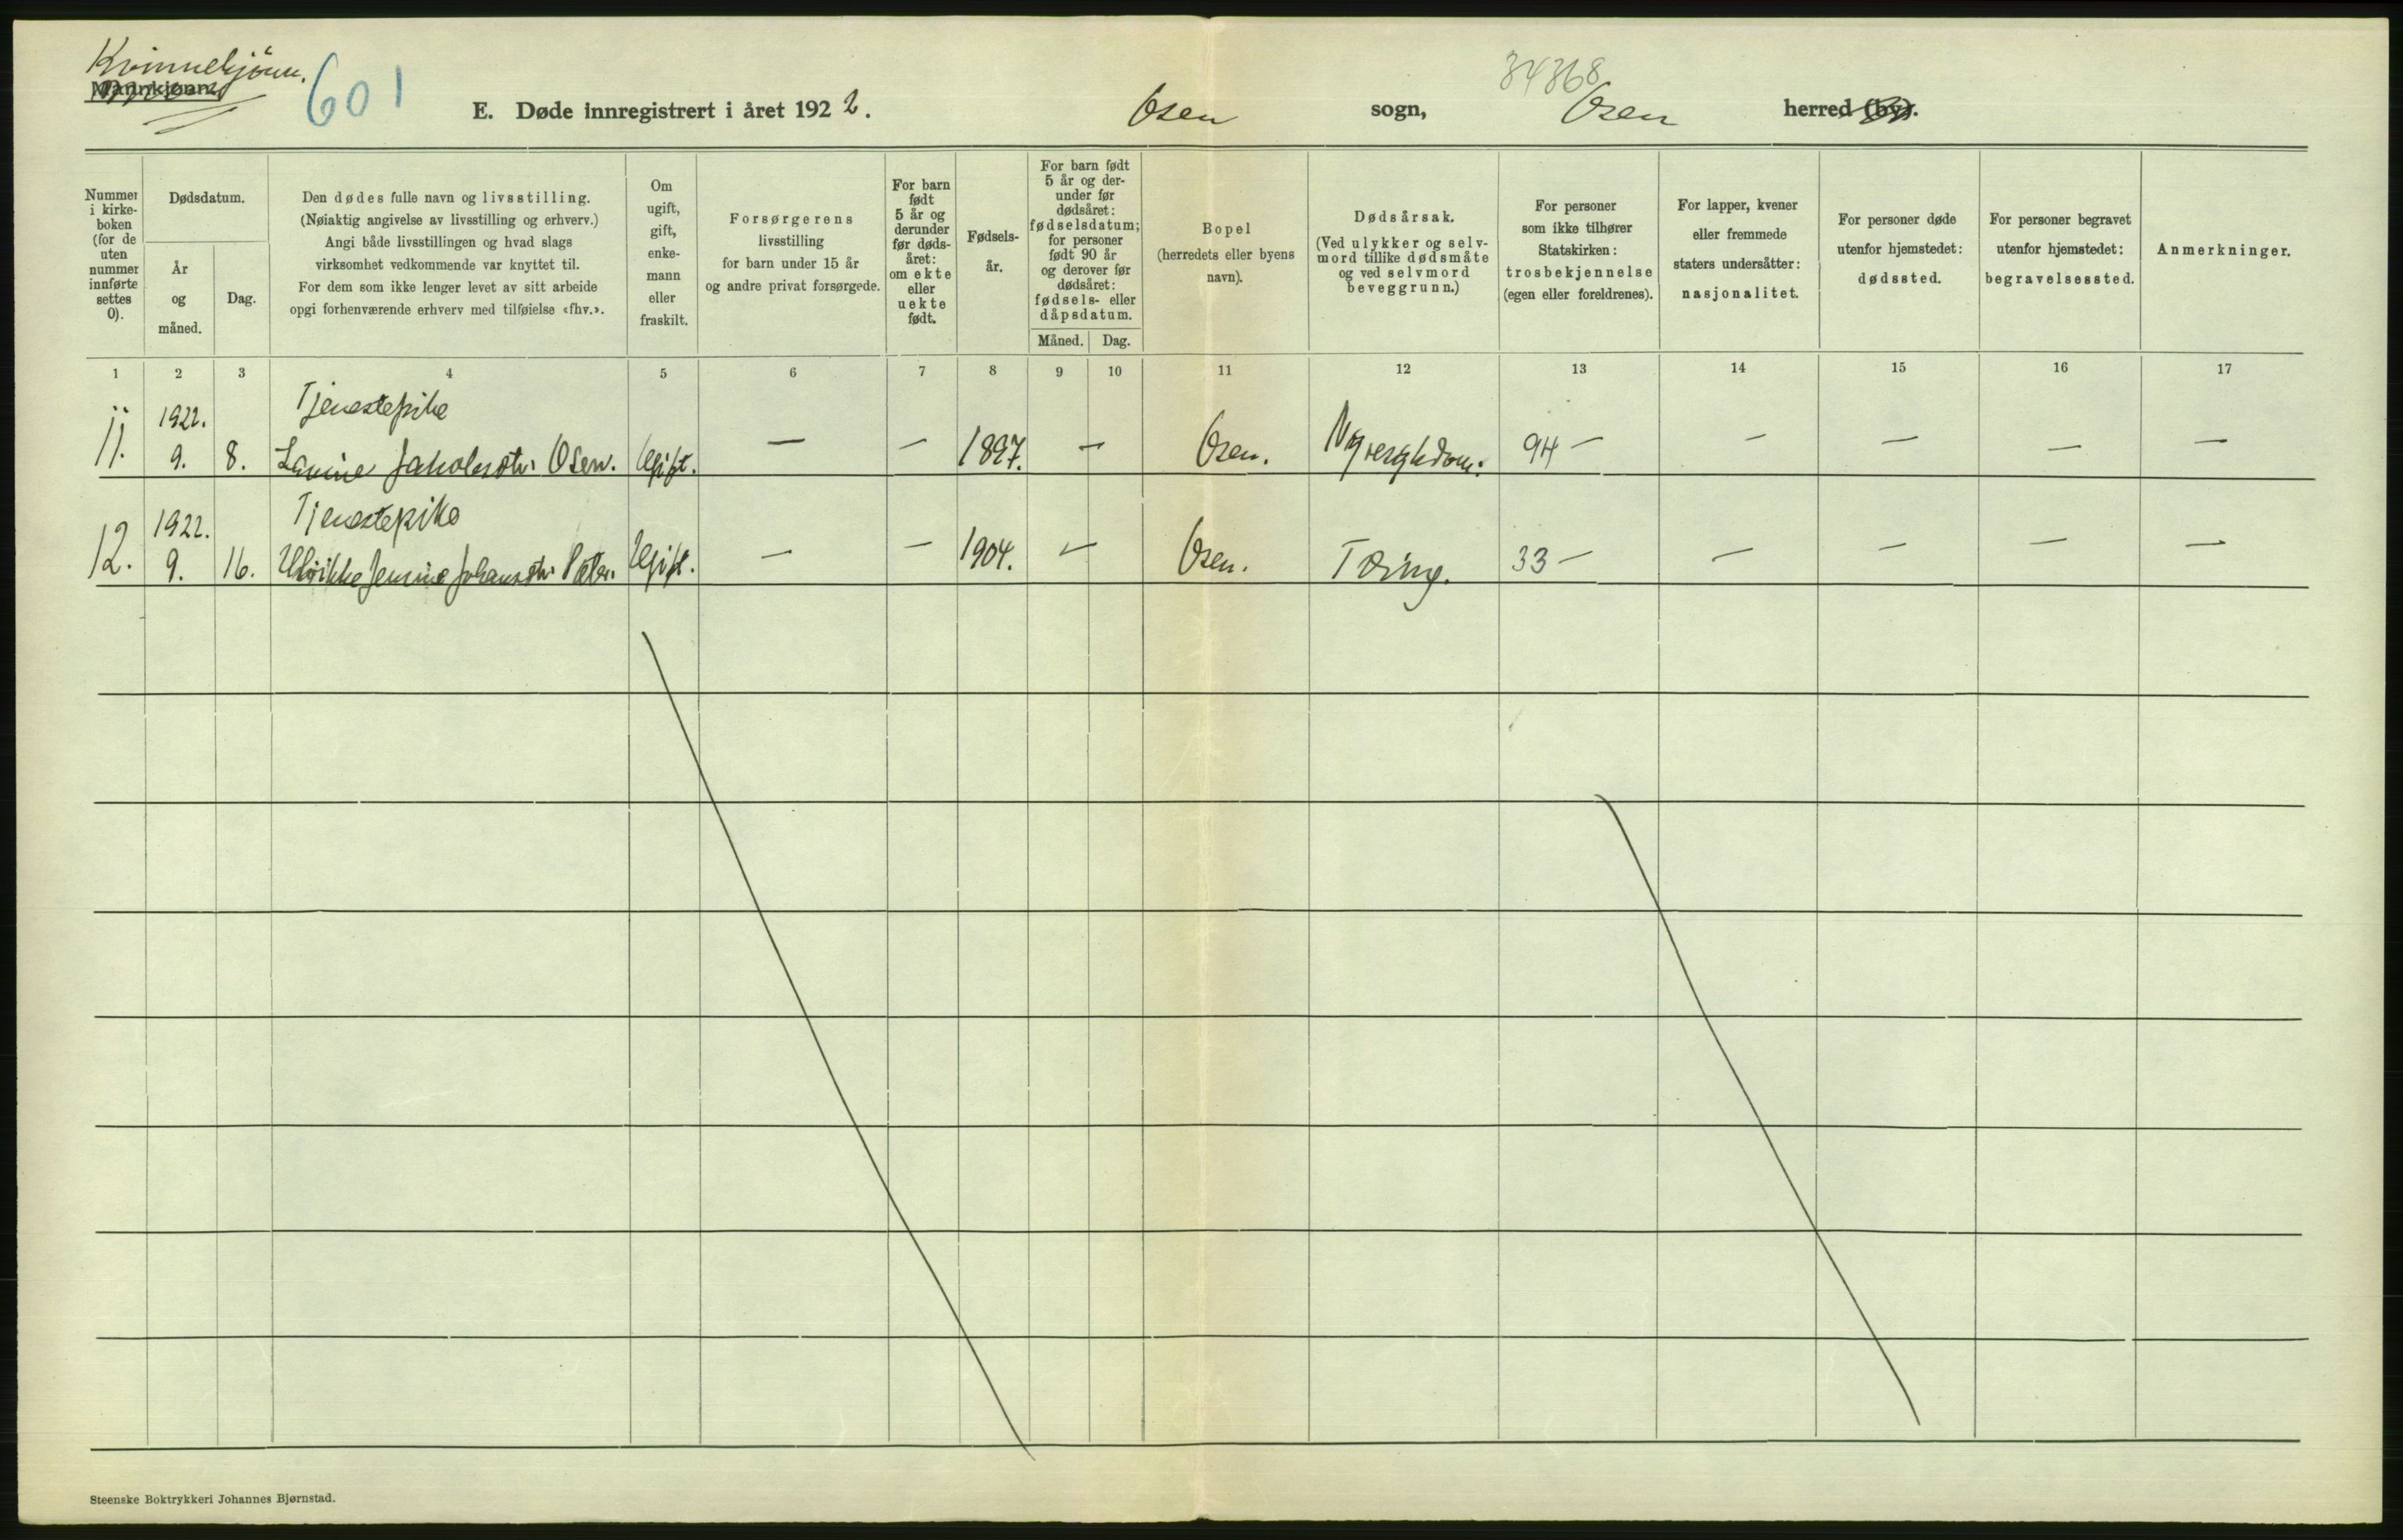 Kvinnekjønn.
Mannkjønn.
601
E. Døde innregistrert i året 1922.
Osen sogn,
34368
Osen herred (by).
Nummer i kirke- boken (for de uten nummer innførte settes 0).
Dødsdatum.
År og måned.
Dag.
Den dødes fulle navn og livsstilling.
(Nøiaktig angivelse av livsstilling og erhverv.)
Angi både livsstillingen og hvad slags
virksomhet vedkommende var knyttet til.
For dem som ikke lenger levet av sitt arbeide
opgi forhenværende erhverv med tilføielse «fhv.».
Om ugift, gift, enke- mann eller fraskilt.
Forsørgerens
livsstilling
for barn under 15 år
og andre privat forsørgede.
For barn født 5 år og derunder før døds- året: om ekte eller uekte født.
Fødsels- år.
For barn født 5 år og der- under før dødsåret: fødselsdatum; for personer født 90 år og derover før dødsåret: fødsels- eller dåpsdatum.
Måned.
Dag.
Bopel
(herredets eller byens
navn).
Dødsårsak.
(Ved ulykker og selv-
mord tillike dødsmåte
og ved selvmord
beveggrunn.)
For personer
som ikke tilhører
Statskirken:
trosbekjennelse
(egen eller foreldrenes).
For lapper, kvener
eller fremmede
staters undersåtter:
nasjonalitet.
For personer døde
utenfor hjemstedet:
dødssted.
For personer begravet
utenfor hjemstedet:
begravelsessted.
Anmerkninger.
1 2 3 4 5 6 7 8 9 10 11 12 13 14 15 16 17
1922. Tjenestepike
11. 9. 8. Lavine Jakobsdtr. Osen. Ugift. — — 1897. — Osen. 94 — — — — —
1922. Tjenestepike
12. 9. 16. Ulrikke Jensine Johansdtr. Ugift. — — 1904. — Osen. Tæring. 33 — — — — —
Steenske Boktrykkeri Johannes Bjørnstad.